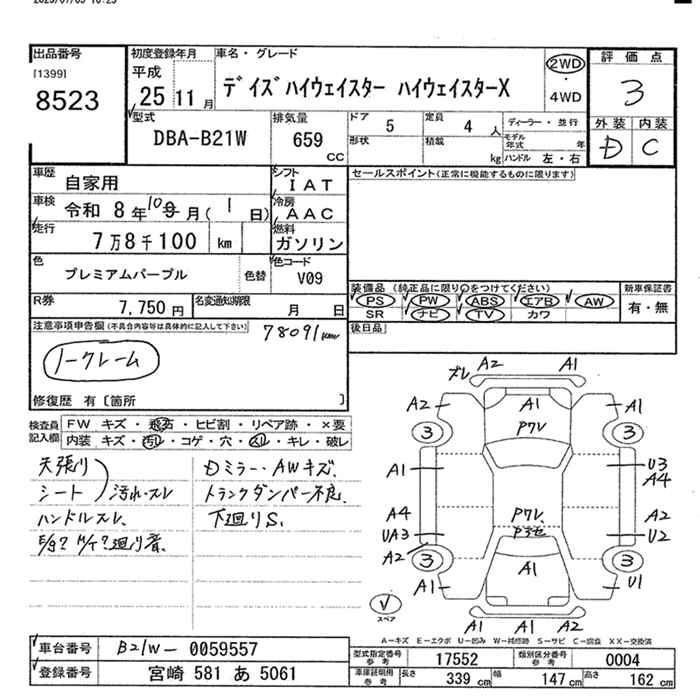 出品番号
[1399]
8523
初度登録年月
平成
25年11月
車名・グレード
デイズハイウェイスター ハイウェイスターX
2WD
・
4WD
評価点
3
外装 内装
D C
型式
DBA-B21W
排気量
659
CC
ドア 5
定員 4 人
形状
積載 kg
ディーラー・並行
モデル年式 年
ハンドル 左・右
車歴
自家用
車検
令和 8年10月(1日)
走行
7万8千100 km
シフト
IAT
冷房
AAC
燃料
ガソリン
色
プレミアムパープル
色替
色コード
V09
R券
7,750円
名変通知期限
月 日
セールスポイント(正常に機能するものに限ります)
装備品 (純正品に限り○をつけてください)
PS PW ABS エアB AW
SR ナビ TV カワ
新車保証書
有・無
後日品
注意事項申告欄(不具合内容等は具体的に記入して下さい)
78091km
ノークレーム
修復歴 有[箇所 ]
検査員記入欄
FW キズ・飛石・ヒビ割・リペア跡・×要
内装 キズ・汚れ・コゲ・穴・スレ・キレ・破レ
天張り
シート
汚れ・スレ
ハンドルスレ
Dミラー・AWキズ
トランクダンパー不良
下廻りS
ズレ A2 A1
A2 A1 A1
3 P7V 3
A1 U3
A4
A4 P7V A2
UA3 U2
A2 3 A1 3
A1 U1
A1 A1 A2
スペア
A-キズ E-エクボ U-凹み W-補修跡 S-サビ C-腐食 XX-交換済
車台番号
B21W-0059557
登録番号
宮崎 581 あ 5061
型式指定番号
参考
17552
類別区分番号
参考
0004
車庫証明用
参考
長さ 339 cm
幅 147 cm
高さ 162 cm